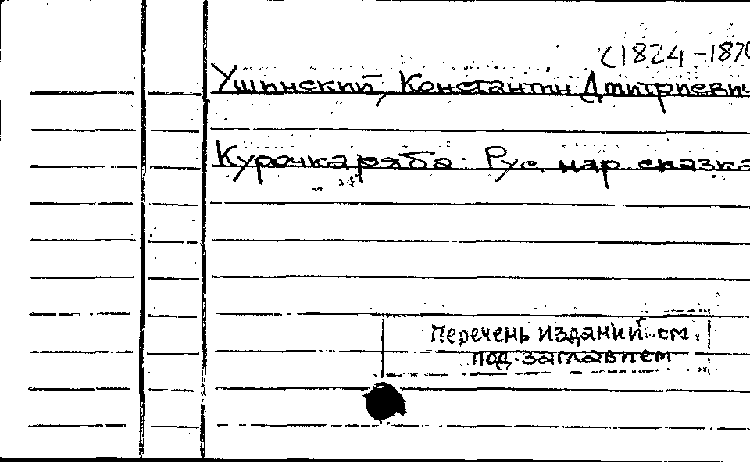 (1824-1870
Ушинский, Константин Дмитриевич
Курочка ряба. Рус. нар. сказка
Перечень изданий см.
под заглавием